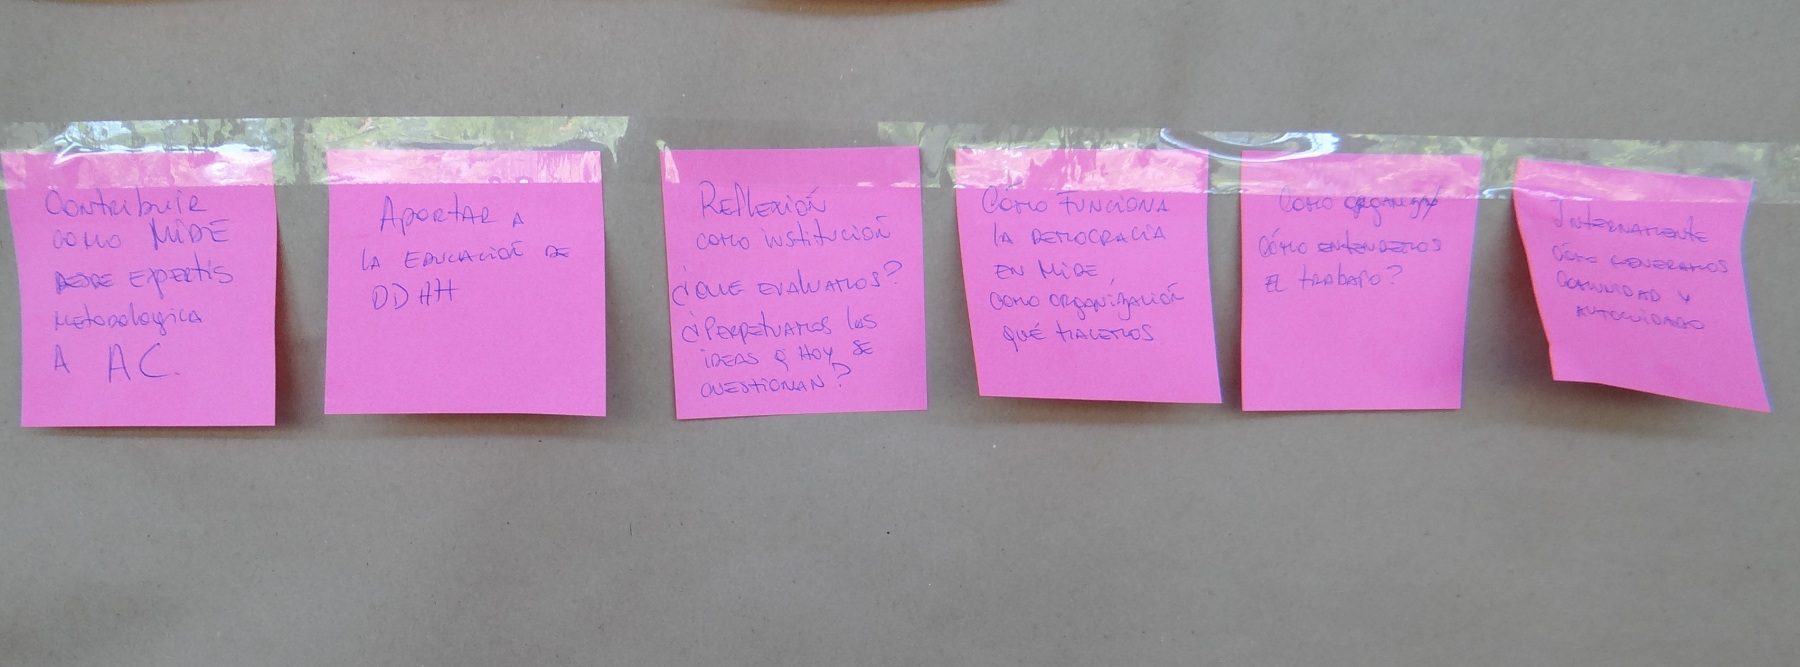 Contribuir
como MIDE
DESDE expertis
Metodologica
A AC.
Aportar A
LA EDUCACIÓN DE
DDHH
Reflexión
como institución
¿QUE EVALUAMOS?
¿PERPETUAMOS LAS
IDEAS q HOY SE
CUESTIONAN?
CÓMO FUNCIONA
LA DEMOCRACIA
EN MIDE,
COMO ORGANIZACIÓN
QUÉ HACEMOS
CÓMO
CÓMO ENTENDEMOS
EL TRABAJO?
INTERNAMENTE
CÓMO GENERAMOS
COMUNIDAD Y
AUTOCUIDADO